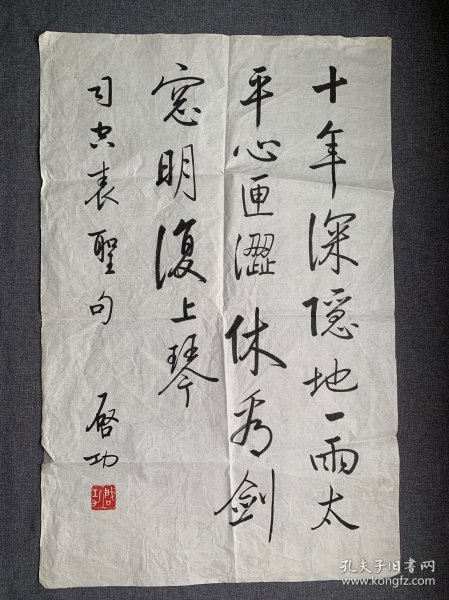 十年深隐地一雨太
平心匣澀休看劍
窓明復上琴
司空表聖句
啟功
孔夫子旧书网
www.kongfz.com